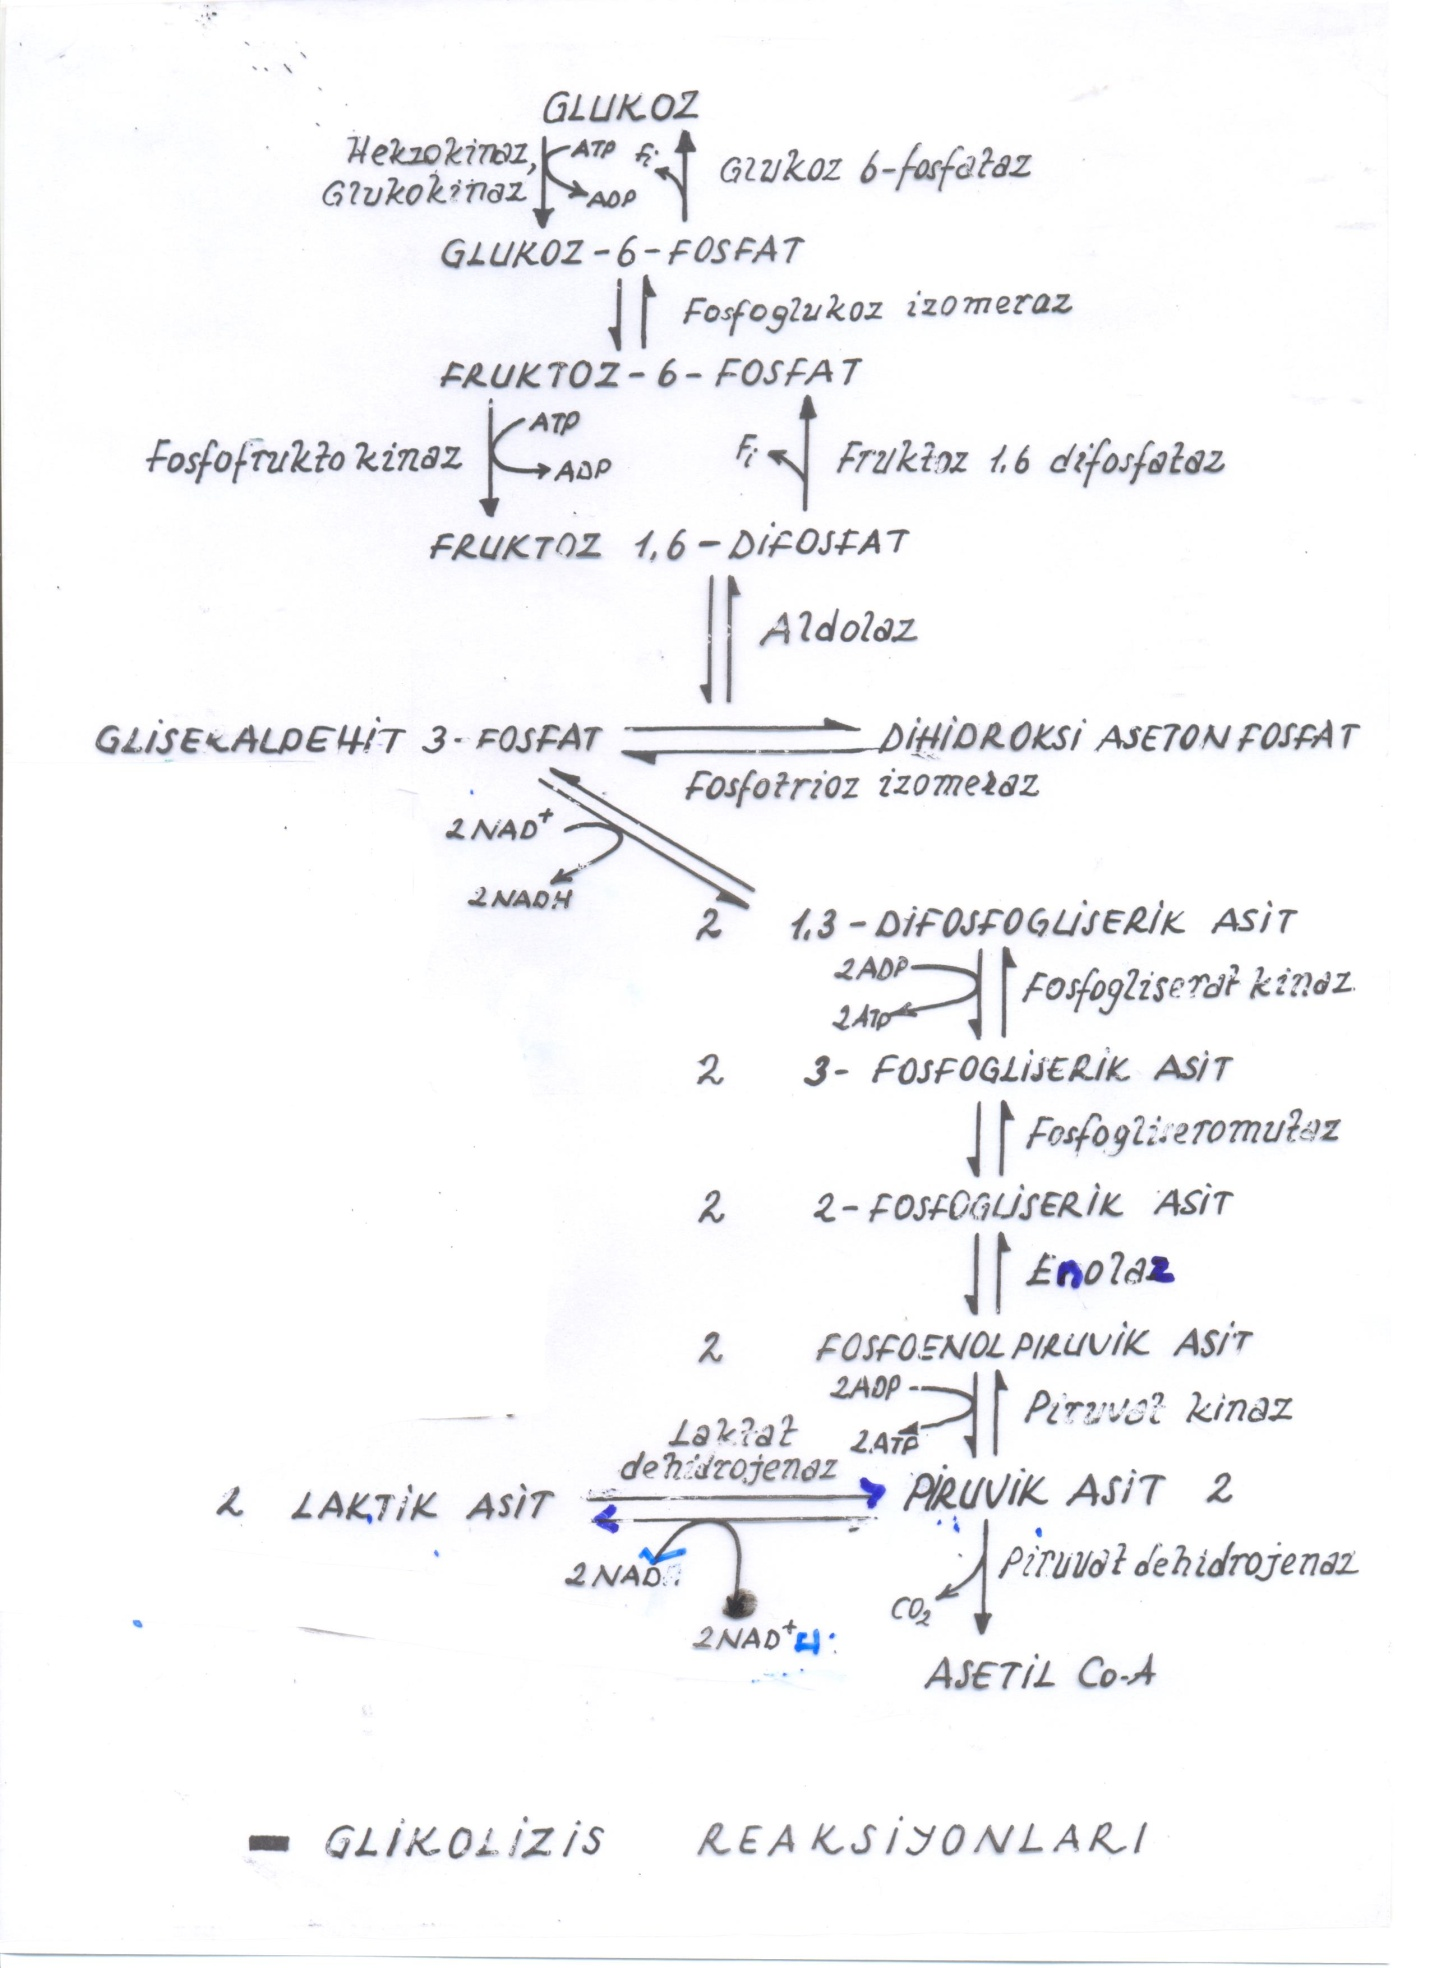 GLUKOZ
Hekzokinaz,
Glukokinaz
ATP
ADP
Fi
Glukoz 6-fosfataz
GLUKOZ-6-FOSFAT
Fosfoglukoz izomeraz
FRUKTOZ-6-FOSFAT
Fosfofrukto kinaz
ATP
ADP
Fi
Fruktoz 1.6 difosfataz
FRUKTOZ 1,6-DİFOSFAT
Aldolaz
GLİSERALDEHİT 3-FOSFAT
DİHİDROKSİ ASETON FOSFAT
Fosfotrioz izomeraz
2NAD+
2NADH
2 1,3-DİFOSFOGLİSERİK ASİT
2ADP
2ATP
Fosfogliserat kinaz
2 3-FOSFOGLİSERİK ASİT
Fosfogliseromutaz
2 2-FOSFOGLİSERİK ASİT
Enolaz
2 FOSFOENOLPIRUVİK ASİT
2ADP
2ATP
Piruvat kinaz
Laktat
dehidrojenaz
2 LAKTİK ASİT
PİRUVİK ASİT 2
2NAD
2NAD+H
Piruvat dehidrojenaz
CO2
ASETİL Co-A
- GLİKOLİZİS REAKSİYONLARI